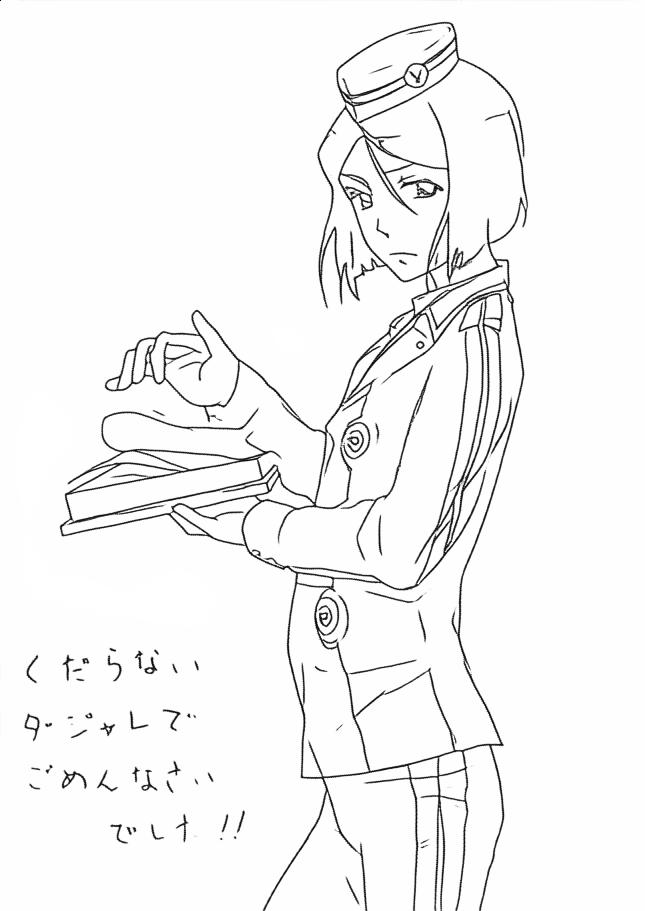 くだらない
ダジャレで
ごめんなさい
でした!!